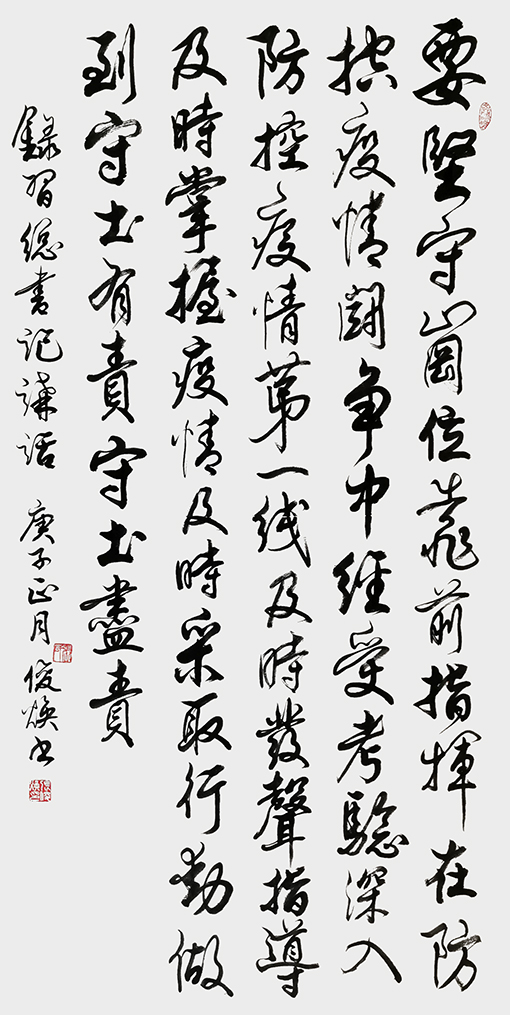 要堅守崗位靠前指揮在防
控疫情鬪争中經受考驗深入
防控疫情苐一线及時發聲指導
及時掌握疫情及時采取行動做
到守土有責守土盡責
錄習總書記講話 庚子正月 俊煥书